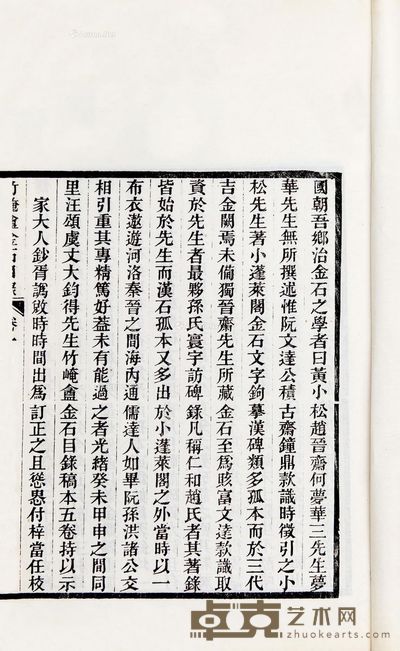 國朝吾鄉治金石之學者曰黃小松趙晉齋何夢華三先生夢
華先生無所撰述惟阮文達公積古齋鐘鼎款識時徵引之小
松先生著小蓬萊閣金石文字鉤摹漢碑類多孤本而於三代
吉金闕焉未備獨晉齋先生所藏金石至爲賅富文達款識取
資於先生者最夥孫氏寰宇訪碑錄凡稱仁和趙氏者其著錄
皆始於先生而漢石孤本又多出於小蓬萊閣之外當時以一
布衣遨遊河洛秦晉之間海內通儒達人如畢阮孫洪諸公交
相引重其專精篤好葢未有能過之者光緒癸未甲申之間同
里汪頌虞丈大鈞得先生竹崦盦金石目錄稿本五卷持以示
家大人鈔胥譌敓時時間出爲訂正之且慫恿付梓當任校
竹崦盦金石目錄 卷一
卓克艺术网
zhuokearts.com